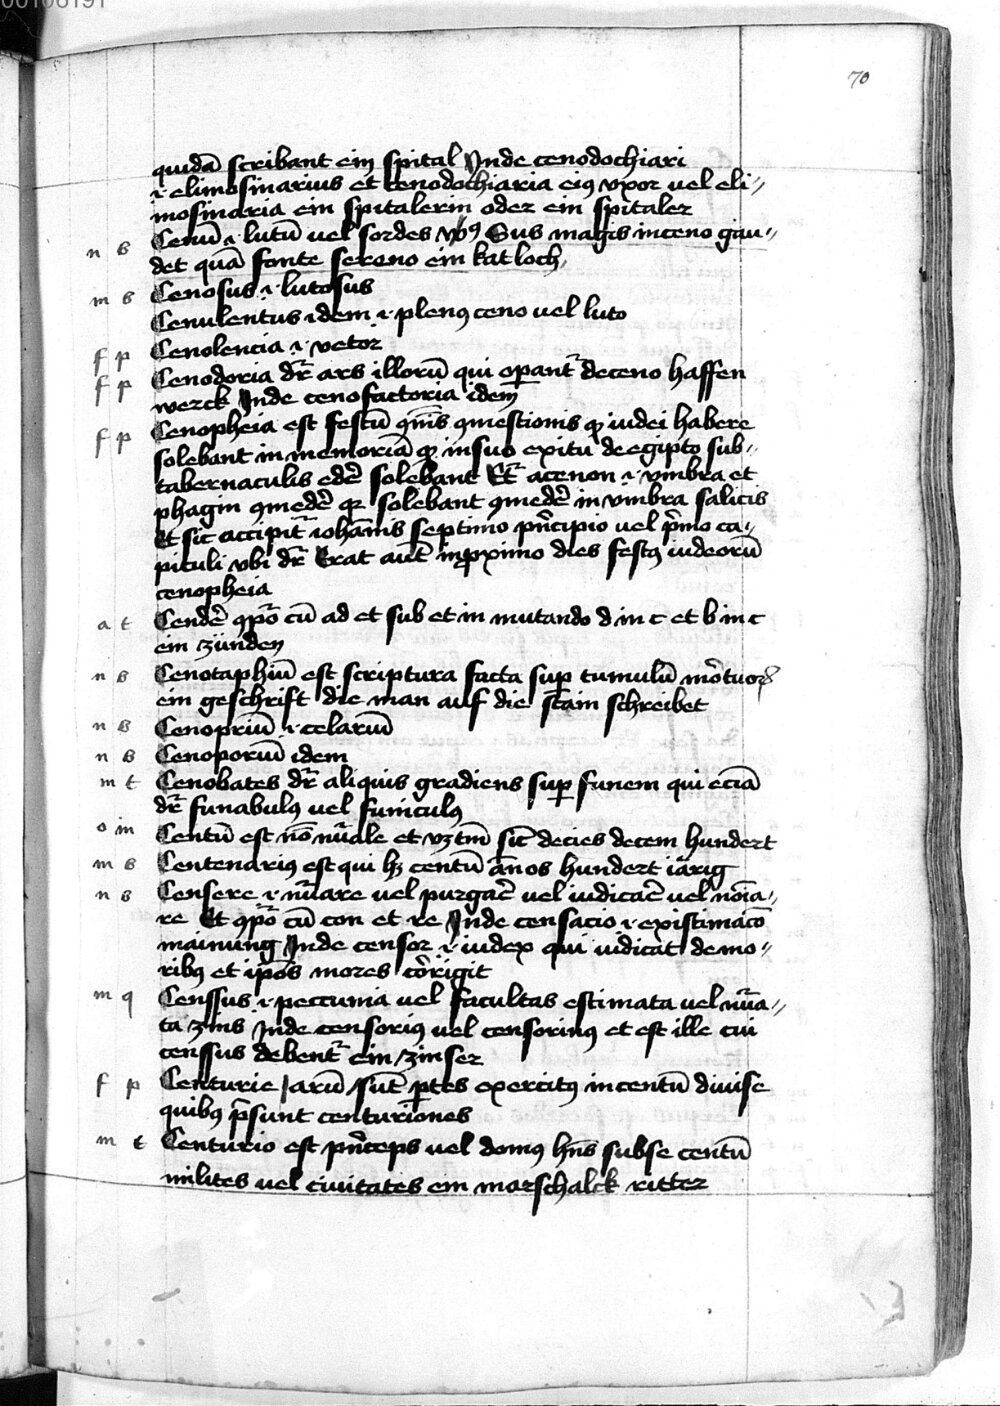 00106191
70
quidā scribant ein spital Inde cenodochiari
.i. elimosinarius et cenodochiaria eiꝰ vxor vel eli-
mosinaria ein spitalerin oder ein spitaler
n s Cenū .i. lutū vel sordes Sus magis inceno gau-
det quā fonte sereno ein katloch
m s Cenosus .i. lutosus
Cenulentus idem .i. plenꝰ ceno vel luto
f p Cenolencia .i. vetor
f p Cenodoria dr̄ ars illorū qui operant᷑ deceno haffen
werck Inde cenofactoria idem
f p Cenopheia est festū iudei habere
solebant in memoriā insuo exitu de egipto sub-
tabernaculis edē solebant Et acenon .i. vmbra et
phagin ꝯmedē solebant ꝯmedē in vmbra salicis
Et sic accipit᷑ iohānis septimo pn̄cipio vel p̄mo ca-
pituli vbi dr̄ Erat aūt inproximo dies festꝰ iudeorū
cenopheia
a t Cendē ꝯpō cū ad et sub et in mutando d in c et b in c
ein zünden
n s Cenotaphiū est scriptura facta sup tumulū mōtuoꝝ
ein geschrift die man auf die stain schreibet
n s Cenopriū .i. celariū
n s Cenoporiū idem
m t Cenobates dr̄ aliquis gradiens sup funem qui eciā
dr̄ funabulꝰ vel funiculꝰ
o m Centū est nō nūale et tm̄ sic decies decem hundert
m s Centenariꝰ est qui hꝫ centū ānos hundert iārig
n s Censere .i. nūare vel purgar̄ vel iudicar̄ vel noīa-
re Et ꝯpō cū con et re Inde censacio .i. existimacō
mainung Inde censor .i. iudex qui iudicat de mo-
ribꝰ et ip̄os mores cōrigit
m q Censsus .i. peccunia vel facultas estimata vel nūa-
ta zins Inde censoriꝰ vel censorinꝰ et est ille cui
censsus debent᷑ ein zinser
f p Centurie arū sūt ptes exercitꝰ in centū diuise
quibꝰ p̄sunt centuriones
m t Centurio est pn̄ceps vel domꝰ hn̄s subse centū
milites vel ciuitates ein marschalck ritter